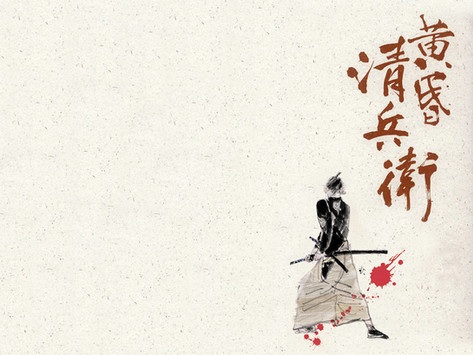 黄昏
清兵衛